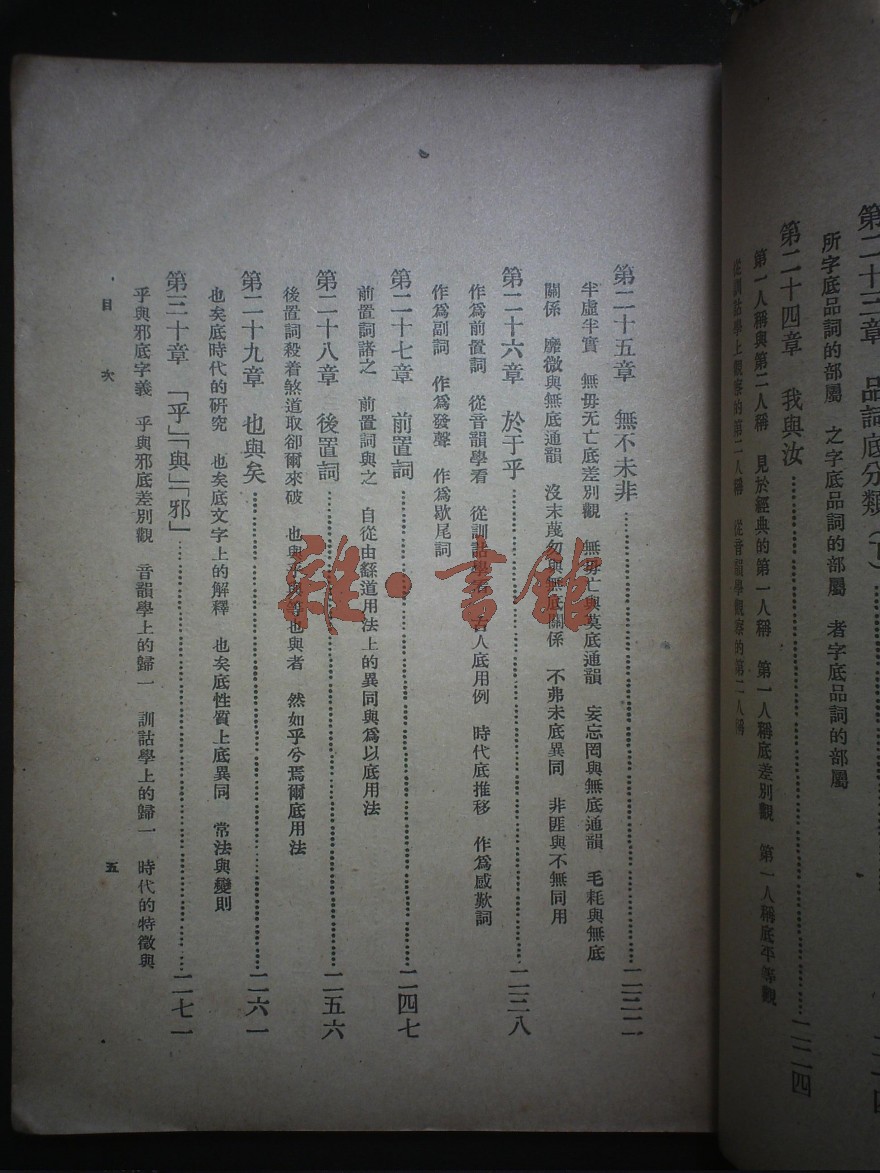 第二十三章　品詞底分類（下）
所字底品詞的部屬　之字底品詞的部屬　者字底品詞的部屬
第二十四章　我與汝……二二四
第一人稱與第二人稱　見於經典的第一人稱　第一人稱底差別觀　第一人稱底平等觀
從訓詁學上觀察的第二人稱　從音韻學觀察的第二人稱
第二十五章　無不未非……二三二
半虛半實　無毋无亡底差別觀　無毋亡與莫底通韻　妄忘罔與無底通韻　毛耗與無底
關係　靡微與無底通韻　沒末蔑勿與無底關係　不弗未底異同　非匪與不無同用
第二十六章　於于乎……二三八
作爲前置詞　從音韻學看　從訓詁學看　古人底用例　時代底推移　作爲感歎詞
作爲副詞　作爲發聲　作爲歇尾詞
第二十七章　前置詞……二四七
前置詞諸之　前置詞與之　自從由繇道用法上的異同與爲以底用法
第二十八章　後置詞……二五六
後置詞殺着煞道取卻爾來破　也與乎與等也與者　然如乎兮焉爾底用法
第二十九章　也與矣……二六一
也矣底時代的硏究　也矣底文字上的解釋　也矣底性質上底異同　常法與變則
第三十章　「乎」「與」「邪」……二七一
乎與邪底字義　乎與邪底差別觀　音韻學上的歸一　訓詁學上的歸一　時代的特徵與
目次　五
雜·書館